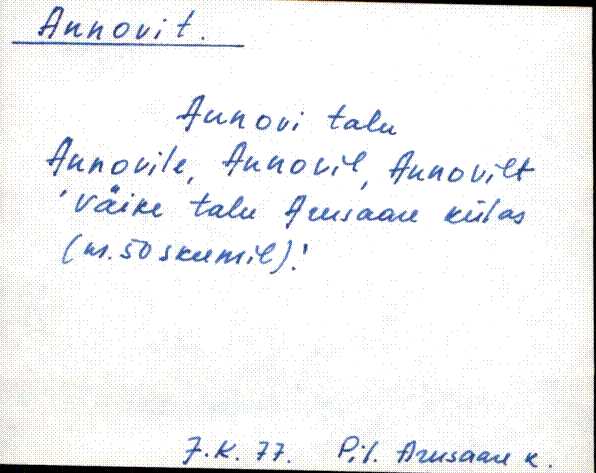 Annovit.
Annovi talu
Annovile, Annovil, Annovilt
'Väike talu Arusaare külas
(m. 50 skumil).'
J.K. 77. Pil. Arusaare k.